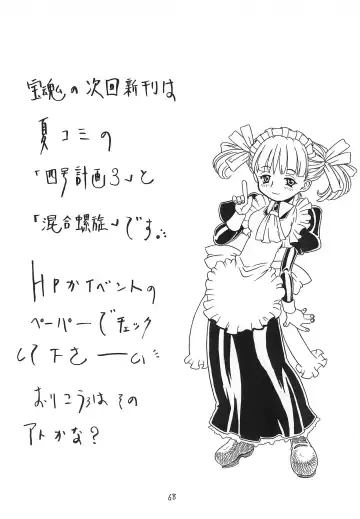 宝魂の次回新刊は
夏コミの
「四号計画3」と
「混合螺旋」です。
HPかイベントの
ペーパーでチェック
して下さーーい
おりこうはその
アトかな?
68